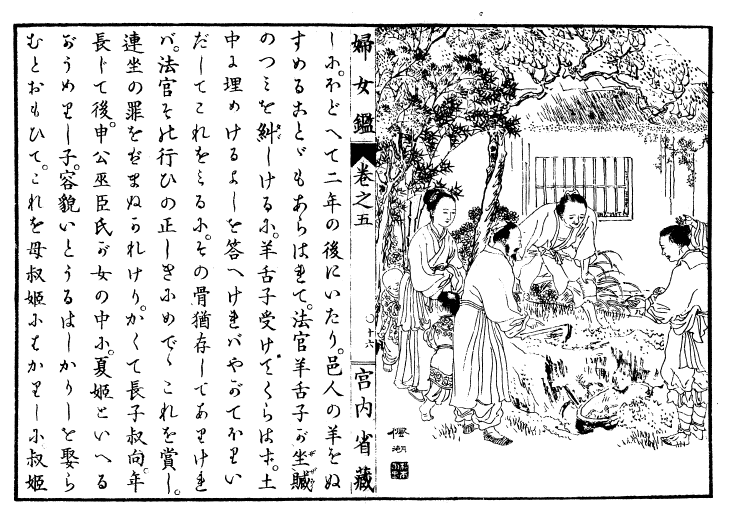 楓湖
婦女鑑 卷之五 〇十六 宮内省藏
しに。ほどへて二年の後にいたり。邑人の羊をぬ
すめることどもあらはれて。法官羊舌子が坐贓
のつみを糾しけるに。羊舌子受けてくらはす。土
中に埋めけるよしを答へければやがてほりい
だしてこれをみるに。その骨猶存してありけれ
バ。法官その行ひの正しきにめでゝこれを賞し。
連坐の罪をばまぬかれけり。かくて長子叔向。年
長じて後。申公巫臣氏が女の中に。夏姫といへる
がうめりし子。容貌いとうるはしかりしを娶ら
むとおもひて。これを母叔姫にはかりしに叔姫